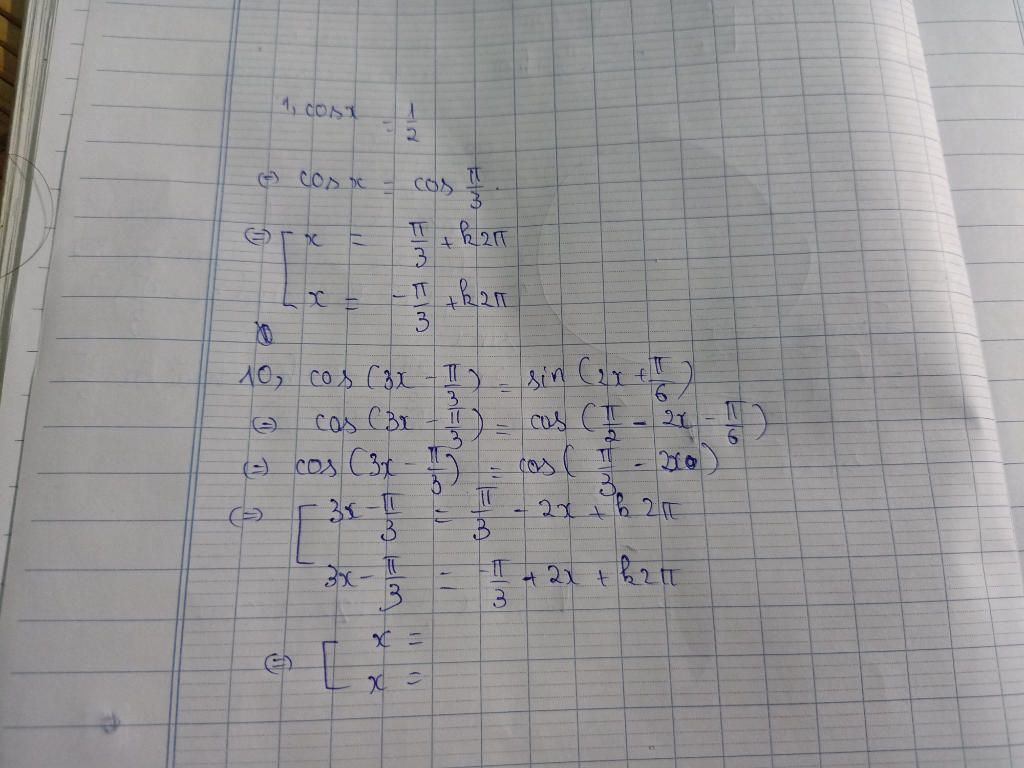 1, cosx = 1/2
⇔ cosx = cos π/3.
⇔ [ x = π/3 + k2π
x = -π/3 + k2π
10, cos(3x - π/3) = sin(2x + π/6)
⇔ cos(3x - π/3) = cos(π/2 - 2x - π/6)
⇔ cos(3x - π/3) = cos(π/3 - 2x)
⇔ [ 3x - π/3 = π/3 - 2x + k2π
3x - π/3 = -π/3 + 2x + k2π
⇔ [ x =
x =